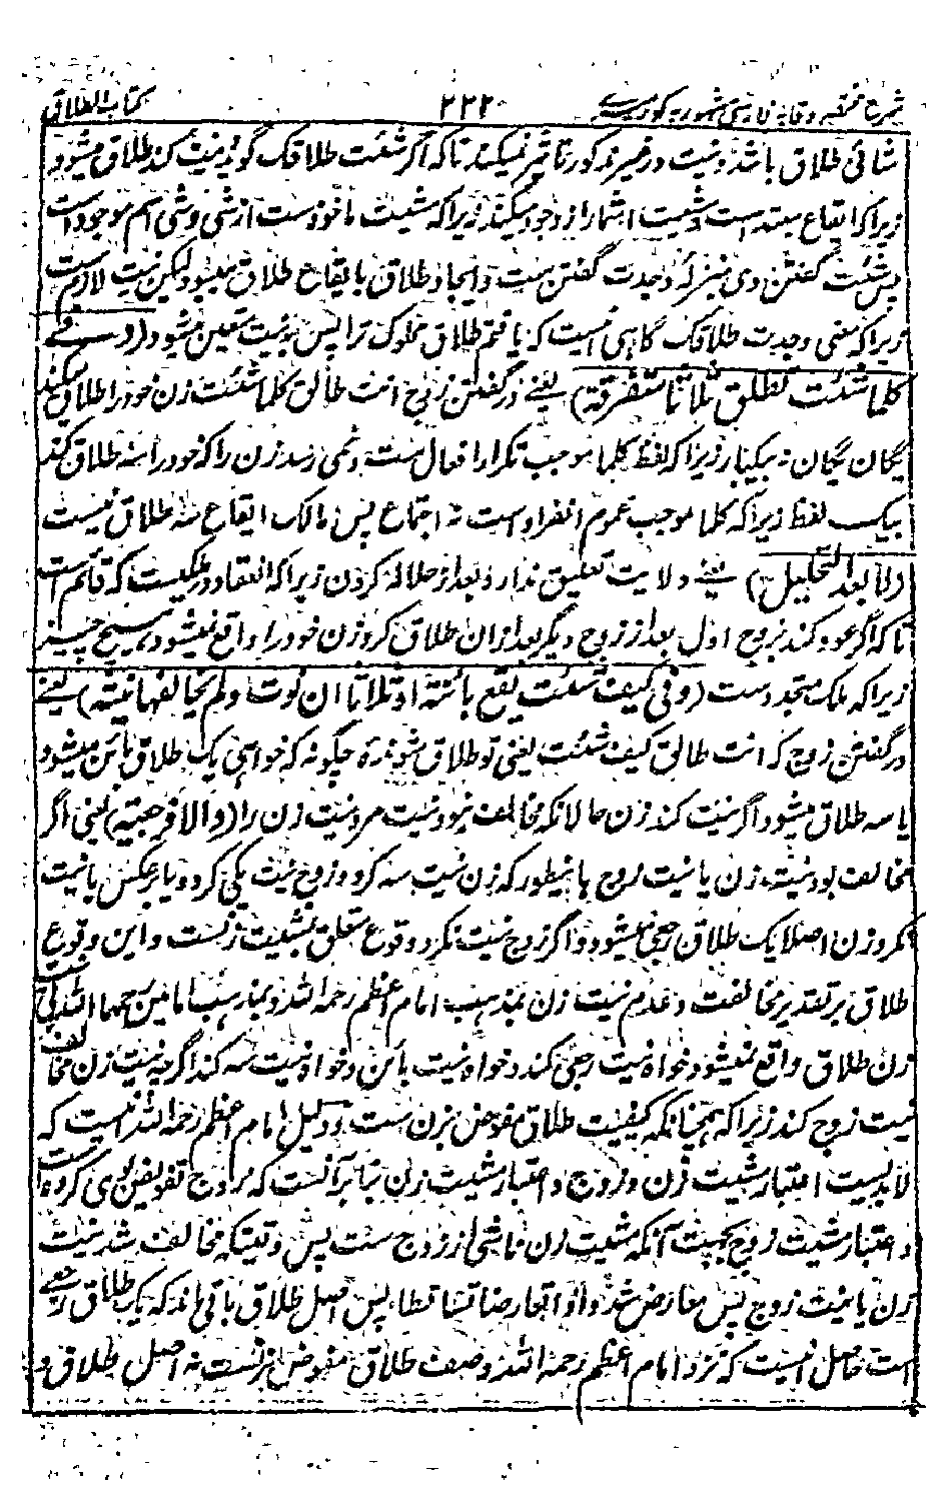 شرح مختصر وقایه فارسی مشهور به کور میری ۲۲۲ کتاب الطلاق
شائی طلاق باشد ونیت در غیر مذکور تاثیر نمیکند تا که اگر شئت طلاقک گوید ونیت کند طلاق میشود
زیرا که ایقاع مبتدا است ومشیت اشعار از وجود میکند زیرا که مشیت ماخوذ ست از شی وشی اسم موجود است
پس شئت گفتن وی بمنزلهٔ وجدت گفتن ست وایجاد طلاق بایقاع طلاق میشود لیکن نیت لازم ست
زیرا که معنی وجدت طلاقک گاهی اینست که یافتم طلاق مملوک ترا پس بنیت متعین میشود (وفی
کلما شئت تطلق ثلاثا متفرقة) یعنی در گفتن زوج انت طالق کلما شئت زن خود را طلاق میکند
یگان یگان نه بیکبار زیرا که لفظ کلما موجب تکرار افعال ست ونمی رسد زن را که خود را سه طلاق کند
بیک لفظ زیرا که کلما موجب عموم انفراد است نه اجتماع پس مالک ایقاع سه طلاق نیست
(لا بعد التحلیل) یعنی ولایت تعلیق ندارد بعد از حلاله کردن زیرا که انعقاد در ملکیست که قائم است
تا که اگر عود کند بزوج اول بعد از زوج دیگر بعد ازان طلاق کرد زن خود را واقع نمیشود هیچ چیز
زیرا که ملک متجدد ست (وفی کیف شئت یقع بائنة او ثلاثا ان نوت ولم یخالفها نیته) یعنی
در گفتن زوج که انت طالق کیف شئت یعنی تو طلاق شوندهٔ چگونه که خواهی یک طلاق بائن میشود
یا سه طلاق میشود اگر نیت کند زن حالانکه مخالف نبود نیت مرد نیت زن را (والا فرجعیة) یعنی اگر
مخالف بود نیت زن با نیت زوج باینطور که زن نیت سه کرد وزوج نیت یکی کرد ویا برعکس یا نیت
نکرد زن اصلا یک طلاق رجعی میشود واگر زوج نیت نکرد وقوع متعلق بمشیت زنست واین وقوع
طلاق بر تقدیر مخالفت وعدم نیت زن بمذهب امام اعظم رحمه الله وبمذهب امامین رحمهما الله بی نیت
زن طلاق واقع نمیشود خواه نیت رجعی کند وخواه نیت بائن وخواه نیت سه کند اگرچه نیت زن مخالف
نیت زوج کند زیرا که همچنانکه کیفیت طلاق مفوض بزن ست ودلیل امام اعظم رحمه الله اینست که
لابدیست اعتبار مشیت زن وزوج واعتبار مشیت زن بنا بر آنست که زوج تفویض بوی کرده است
واعتبار مشیت زوج بجهت آنکه مشیت زن ناشی از زوج ست پس وقتیکه مخالف شد نیت
زن با نیت زوج پس معارض شد واذا تعارضا تساقطا پس اصل طلاق باقی ماند که یک طلاق رجعی
است حاصل اینست که نزد امام اعظم رحمه الله وصف طلاق مفوض بزنست نه اصل طلاق و